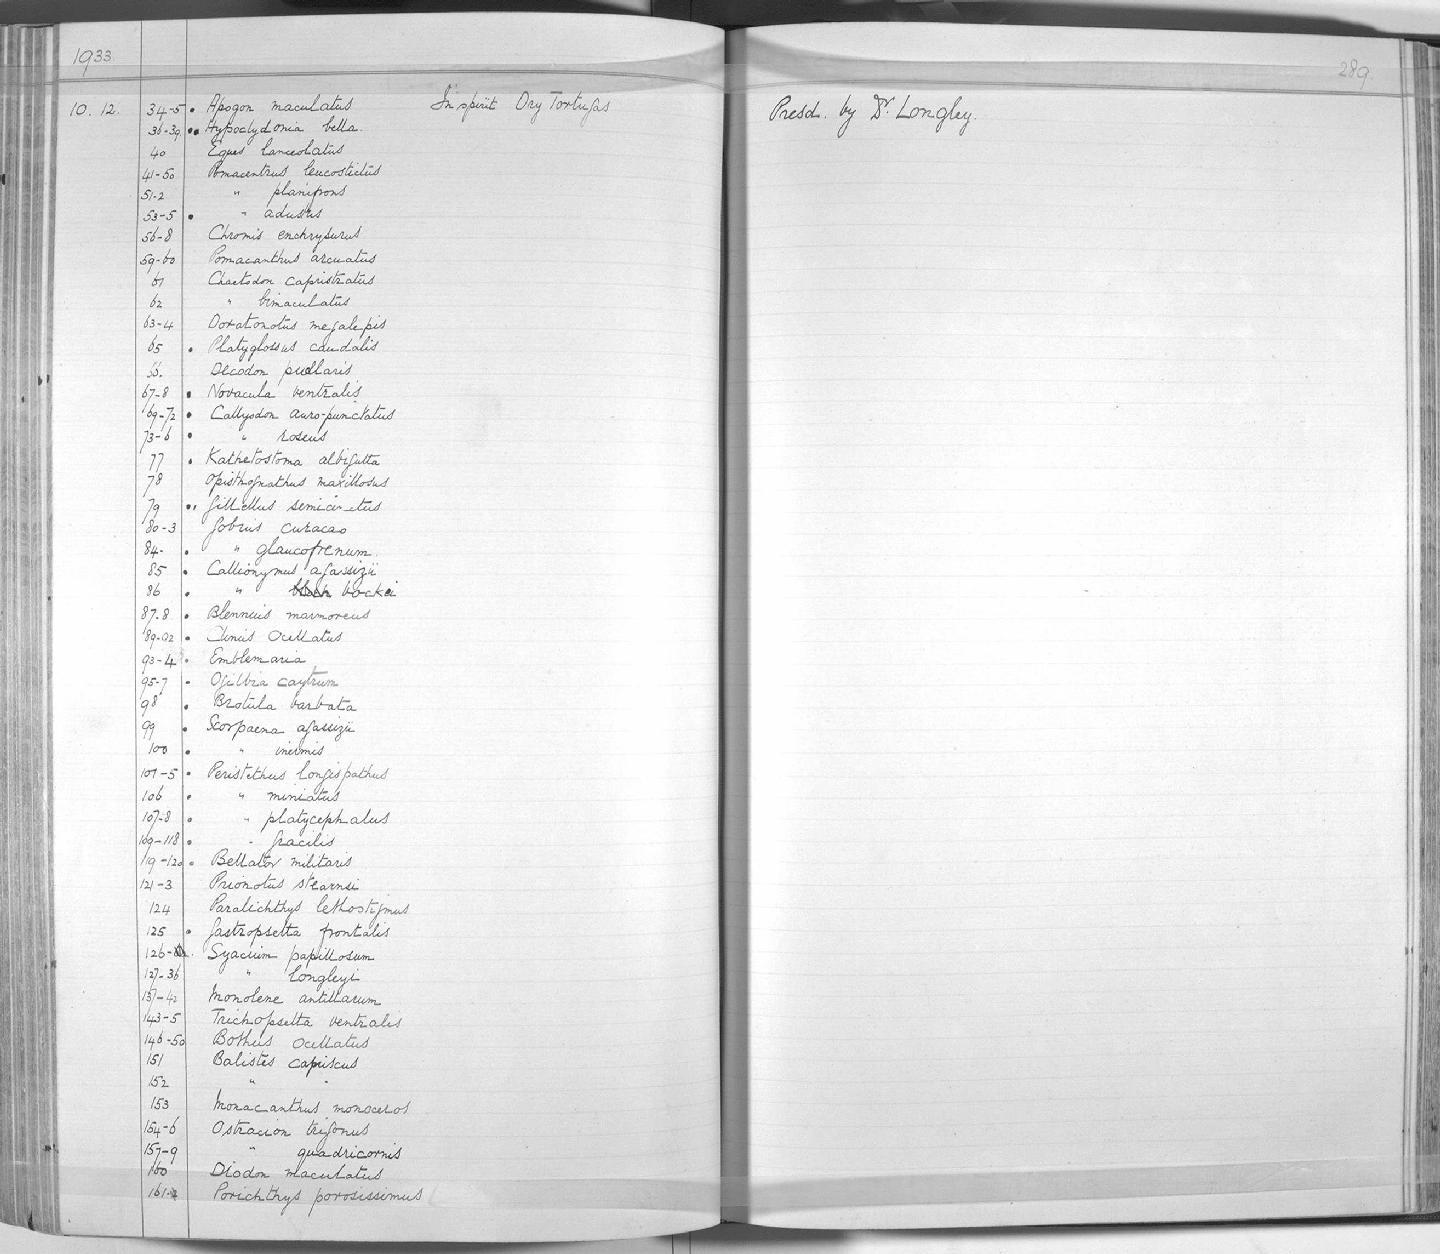 1933
289.
10. 12. 34-5 • Apogon maculatus In spirit Dry Tortugas Presd. by Dr. Longley.
36-39 •• Hypoclydonia bella.
40 Eques lanceolatus
41-50 Pomacentrus leucostictus
51-2 " planifrons
53-5 • " adustus
56-8 Chromis enchrysurus
59-60 Pomacanthus arcuatus
61 Chaetodon capistratus
62 " bimaculatus
63-4 Doratonotus megalepis
65 • Platyglossus caudalis
66. Decodon puellaris
67-8 • Novacula ventralis
69-72 • Callyodon auro-punctatus
73-6 • " roseus
77 • Kathetostoma albigutta
78 Opisthognathus maxillosus
79 •• Gillellus semicinctus
80-3 Gobius curacao
84- • " glaucofrenum.
85 • Callionymus agassizii
86 • " bockei
87-8 • Blennius marmoreus
89-92 • Clinus ocellatus
93-4 • Emblemaria
95-7 • Ogilbia cayorum
98 • Brotula barbata
99 • Scorpaena agassizii
100 • " inermis
101-5 • Peristethus longispathus
106 • " miniatus
107-8 • " platycephalus
109-118 • " gracilis
119-120 • Bellator militaris
121-3 Prionotus stearnsi
124 Paralichthys lethostigmus
125 • Gastropsetta frontalis
126- Syacium papillosum
127-36 " longleyi
137-42 Monolene antillarum
143-5 Trichopsetta ventralis
146-50 Bothus ocellatus
151 Balistes capriscus
152 " "
153 Monacanthus monoceros
154-6 Ostracion trigonus
157-9 " quadricornis
160 Diodon maculatus
161-2 Porichthys porosissimus